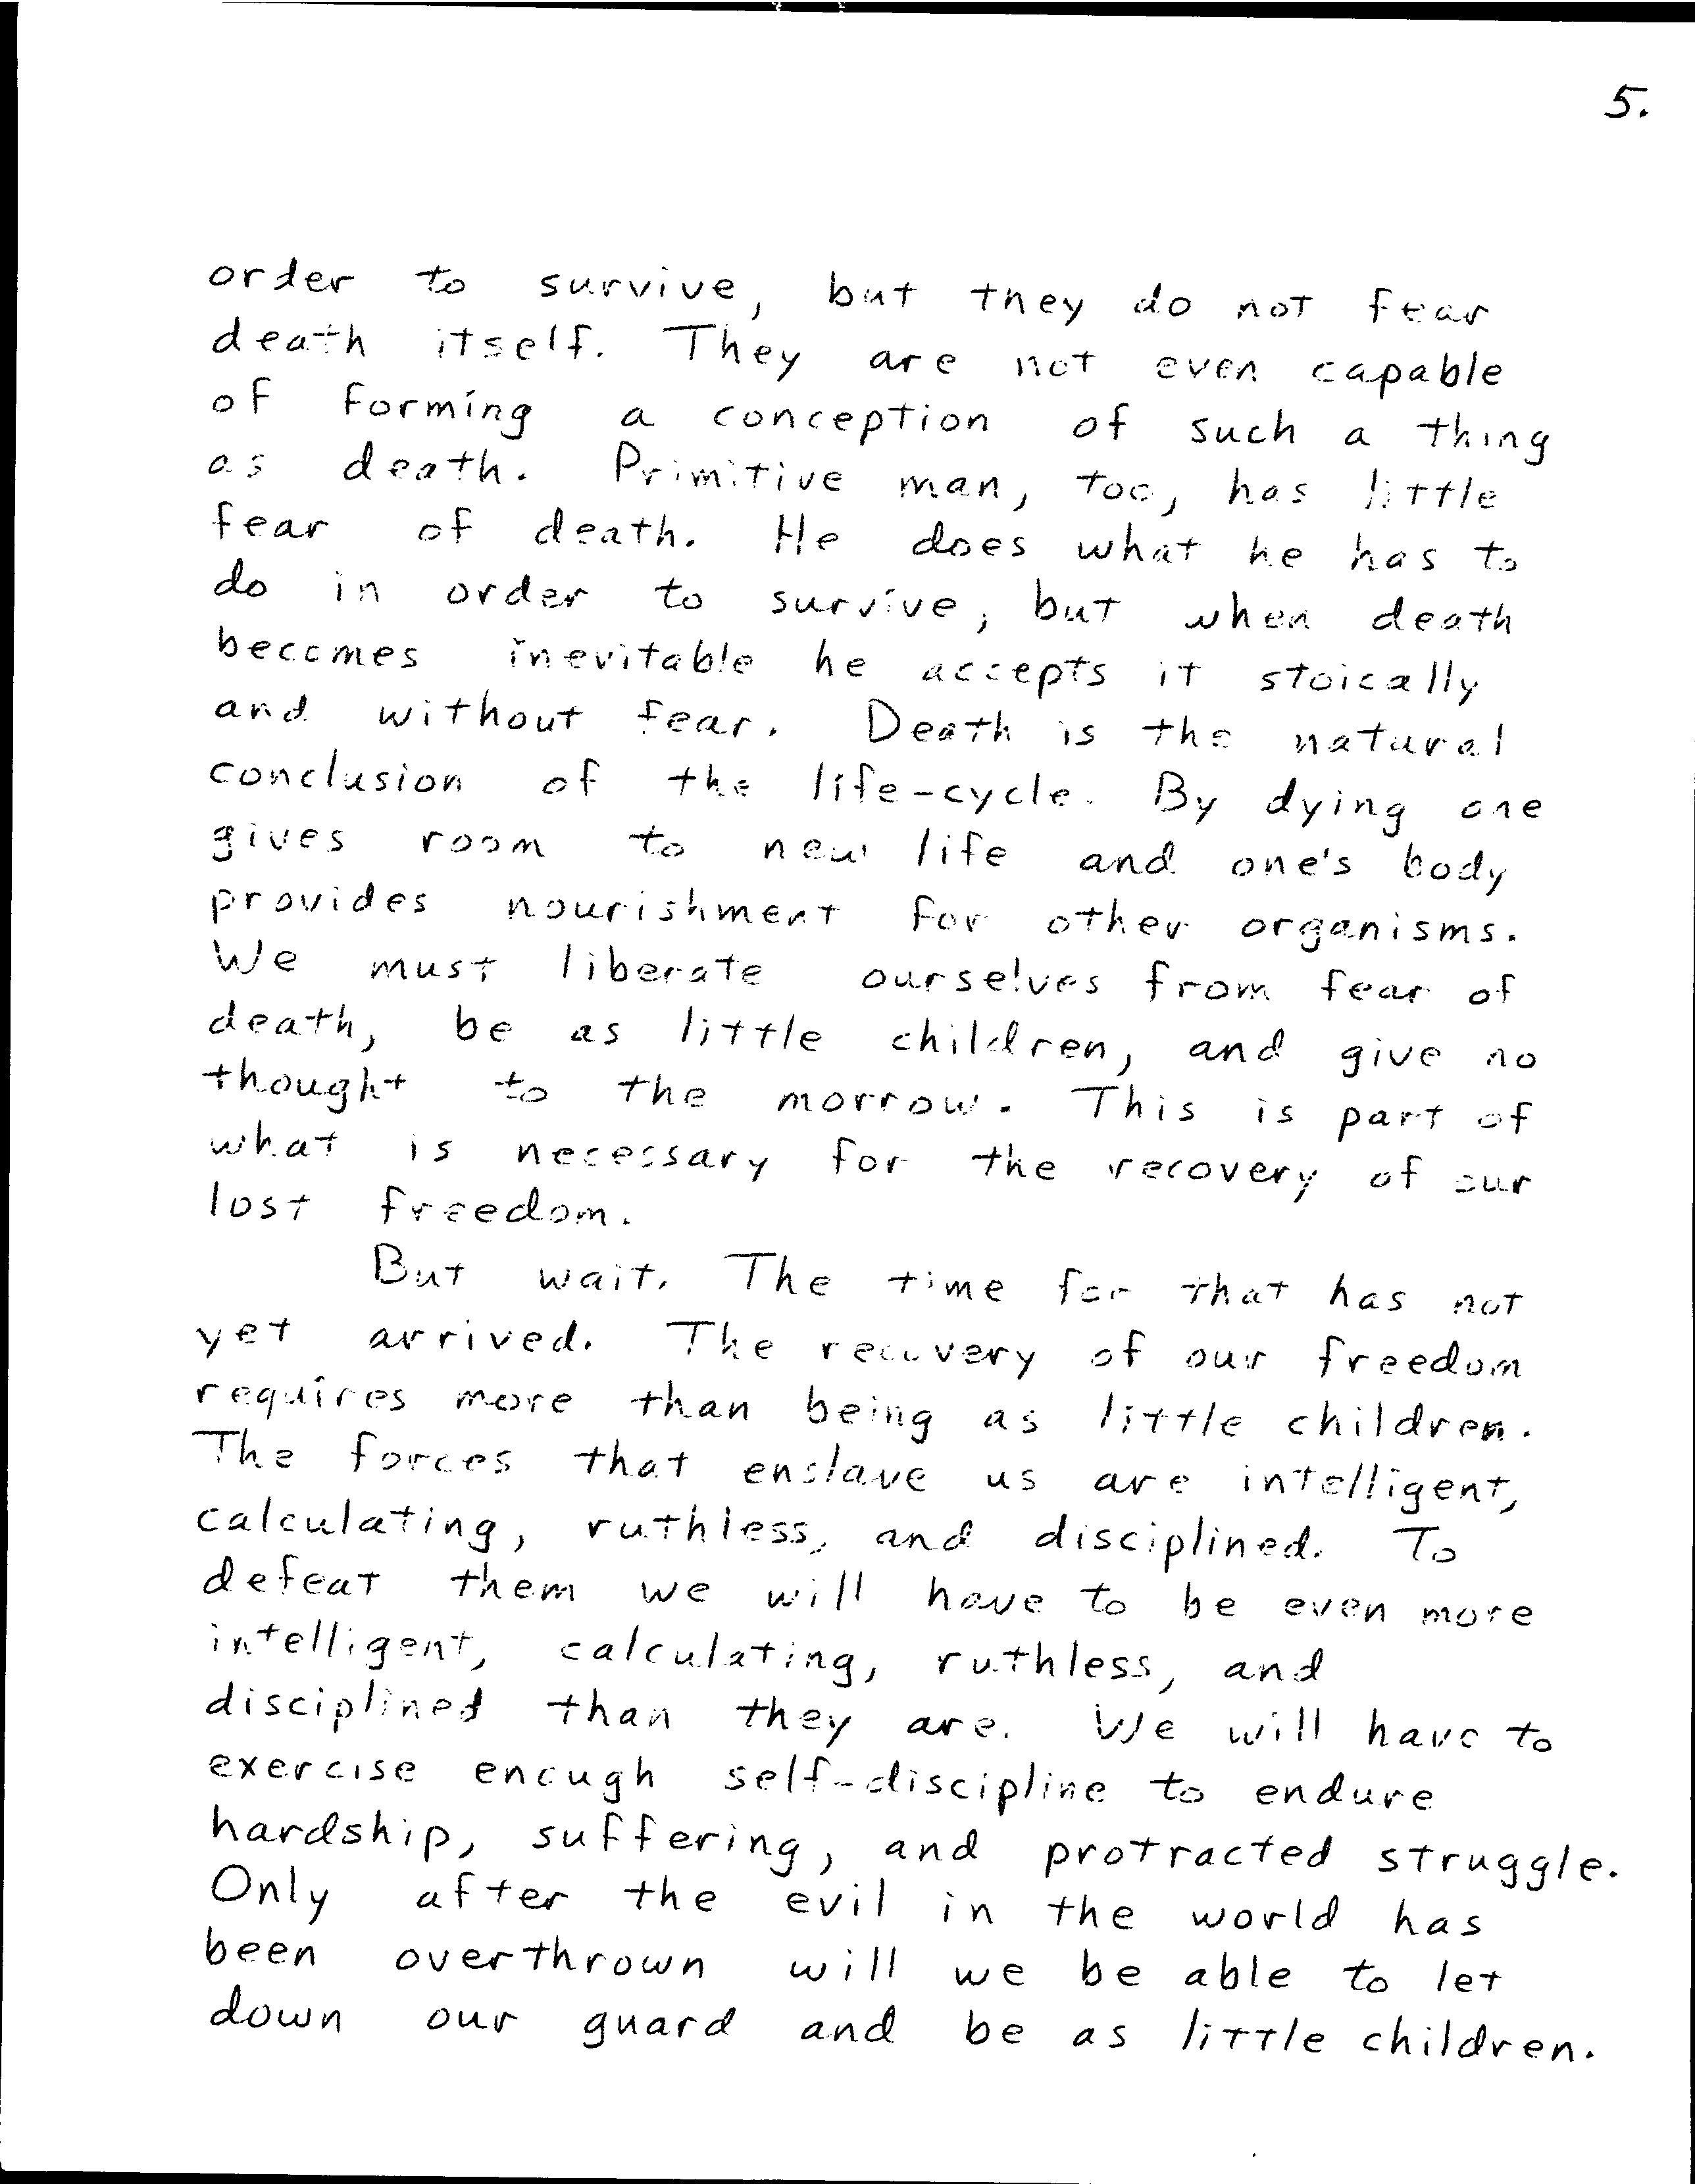 5.
order to survive, but they do not fear
death itself. They are not even capable
of forming a conception of such a thing
as death. Primitive man, too, has little
fear of death. He does what he has to
do in order to survive, but when death
becomes inevitable he accepts it stoically
and without fear. Death is the natural
conclusion of the life-cycle. By dying one
gives room to new life and one's body
provides nourishment for other organisms.
We must liberate ourselves from fear of
death, be as little children, and give no
thought to the morrow. This is part of
what is necessary for the recovery of our
lost freedom.
But wait. The time for that has not
yet arrived. The recovery of our freedom
requires more than being as little children.
The forces that enslave us are intelligent,
calculating, ruthless, and disciplined. To
defeat them we will have to be even more
intelligent, calculating, ruthless, and
disciplined than they are. We will have to
exercise enough self-discipline to endure
hardship, suffering, and protracted struggle.
Only after the evil in the world has
been overthrown will we be able to let
down our guard and be as little children.